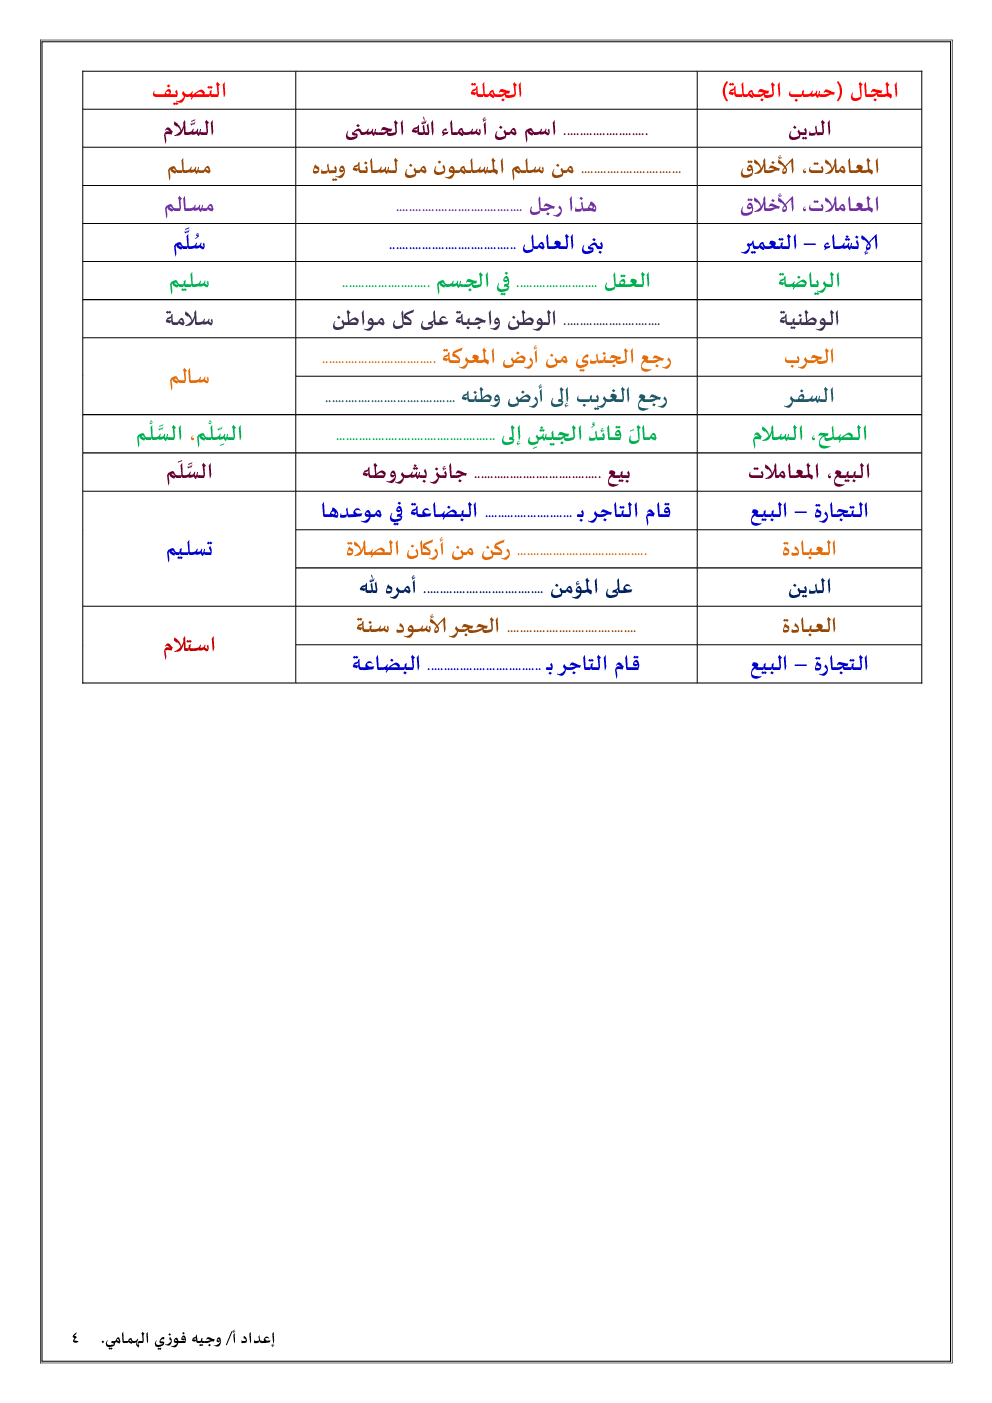 المجال (حسب الجملة) الجملة التصريف
الدين .......................... اسم من أسماء الله الحسنى السَّلام
المعاملات، الأخلاق ............................... من سلم المسلمون من لسانه ويده مسلم
المعاملات، الأخلاق هذا رجل ....................................... مسالم
الإنشاء – التعمير بنى العامل ....................................... سُلَّم
الرياضة العقل ......................... في الجسم ........................... سليم
الوطنية .............................. الوطن واجبة على كل مواطن سلامة
الحرب رجع الجندي من أرض المعركة ................................... سالم
السفر رجع الغريب إلى أرض وطنه ........................................
الصلح، السلام مالَ قائدُ الجيشِ إلى ................................................. السِّلْم، السَّلْم
البيع، المعاملات بيع ....................................... جائز بشروطه السَّلَم
التجارة – البيع قام التاجر بـ ........................... البضاعة في موعدها تسليم
العبادة ........................................ ركن من أركان الصلاة
الدين على المؤمن ..................................... أمره لله
العبادة ........................................ الحجر الأسود سنة استلام
التجارة – البيع قام التاجر بـ ................................... البضاعة
إعداد أ/ وجيه فوزي الهمامي. ٤